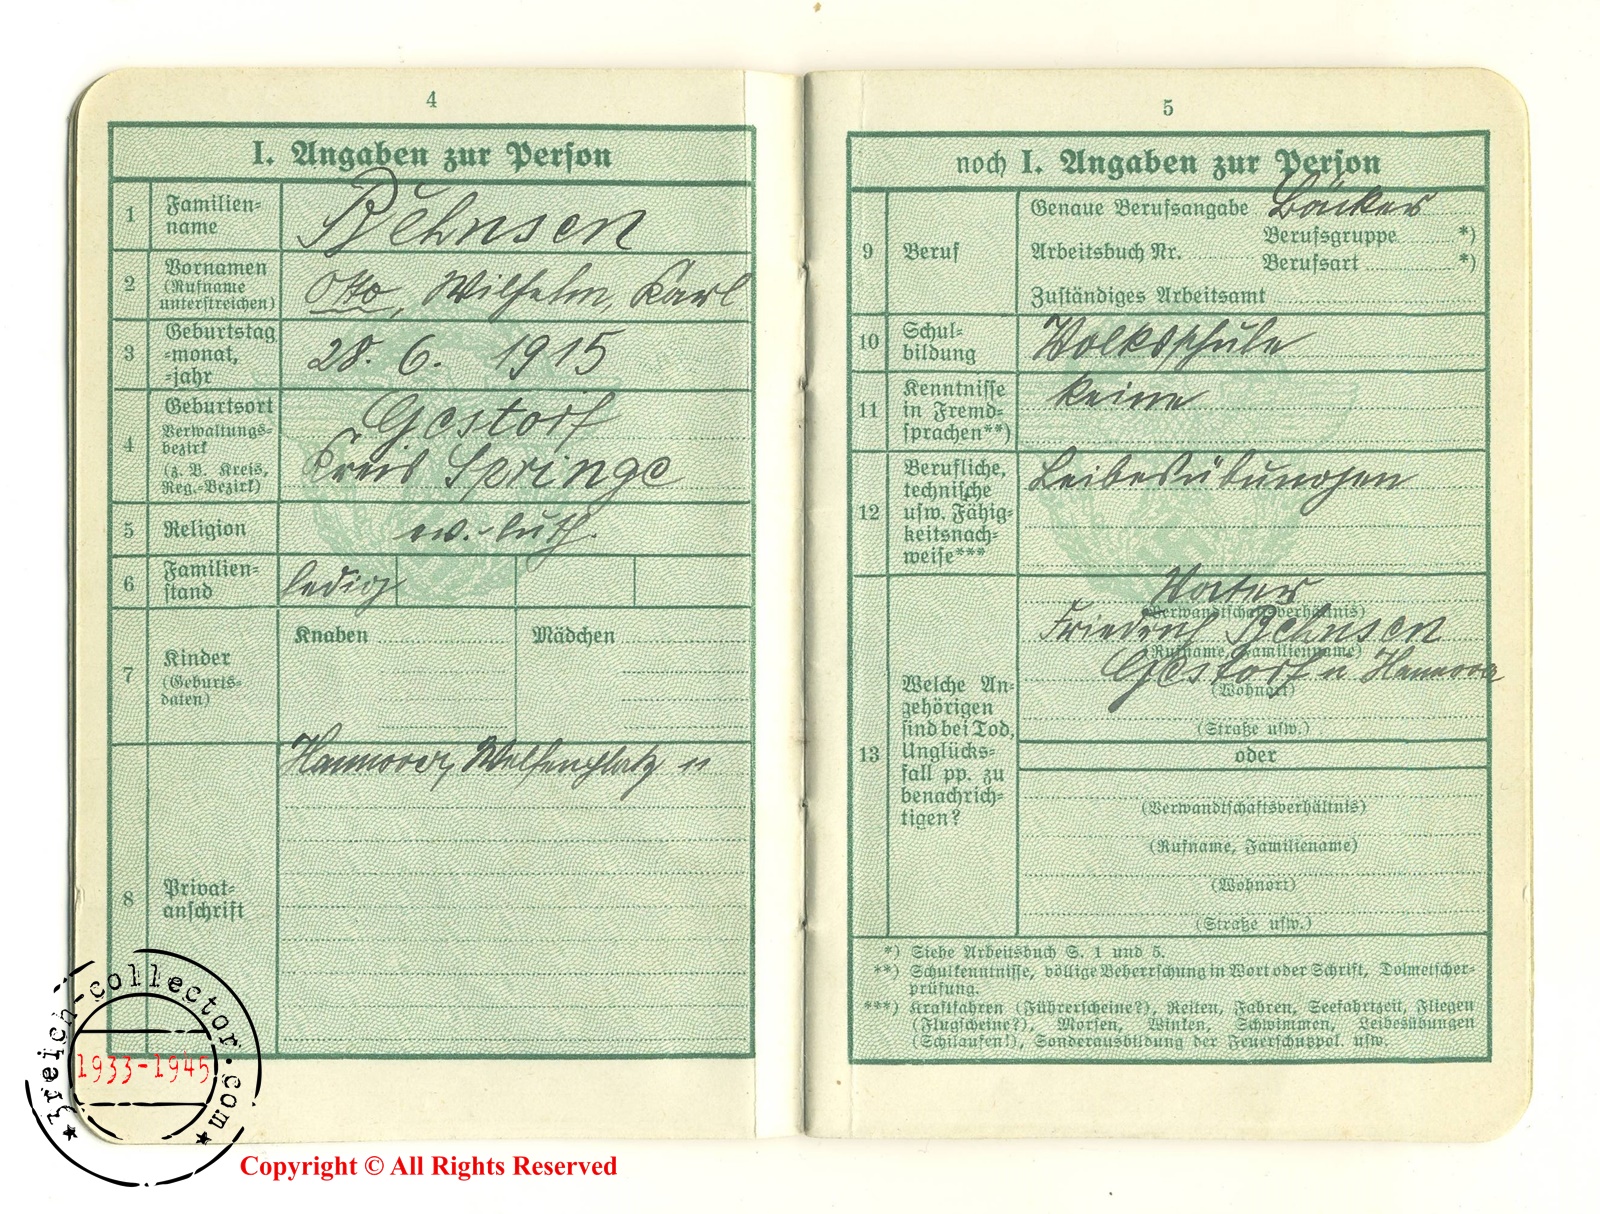 4
I. Angaben zur Person
1 Familien-
name
Behnsen
2 Vornamen
(Rufname
unterstreichen)
Otto, Wilhelm, Karl
3 Geburtstag
-monat,
-jahr
28. 6. 1915
4 Geburtsort
Verwaltungs-
bezirk
(z. B. Kreis,
Reg.-Bezirk)
Gestorf
Kreis Springe
5 Religion
ev.-luth.
6 Familien-
stand
ledig
7 Kinder
(Geburts-
daten)
Knaben
Mädchen
8 Privat-
anschrift
Hannover, Welfenplatz 11
5
noch I. Angaben zur Person
9 Beruf
Genaue Berufsangabe Bäcker
Berufsgruppe *)
Arbeitsbuch Nr.
Berufsart *)
Zuständiges Arbeitsamt
10 Schul-
bildung
Volksschule
11 Kenntnisse
in Fremd-
sprachen**)
keine
12 Berufliche,
technische
usw. Fähig-
keitsnach-
weise***
Leibesübungen
13 Welche An-
gehörigen
sind bei Tod,
Unglücks-
fall pp. zu
benachrich-
tigen?
Vater
(Verwandtschaftsverhältnis)
Friedrich Behnsen
(Rufname, Familienname)
Gestorf Hannover
(Wohnort)
(Straße usw.)
oder
(Verwandtschaftsverhältnis)
(Rufname, Familiename)
(Wohnort)
(Straße usw.)
*) Siehe Arbeitsbuch S. 1 und 5.
**) Schulkenntnisse, völlige Beherrschung in Wort oder Schrift, Dolmetscher-
prüfung.
***) Kraftfahren (Führerscheine?), Reiten, Fahren, Seefahrtzeit, Fliegen
(Flugscheine?), Morsen, Winken, Schwimmen, Leibesübungen
(Schilaufen!), Sonderausbildung der Feuerschutzpol. usw.
3reich-collector.com
1933-1945
Copyright © All Rights Reserved